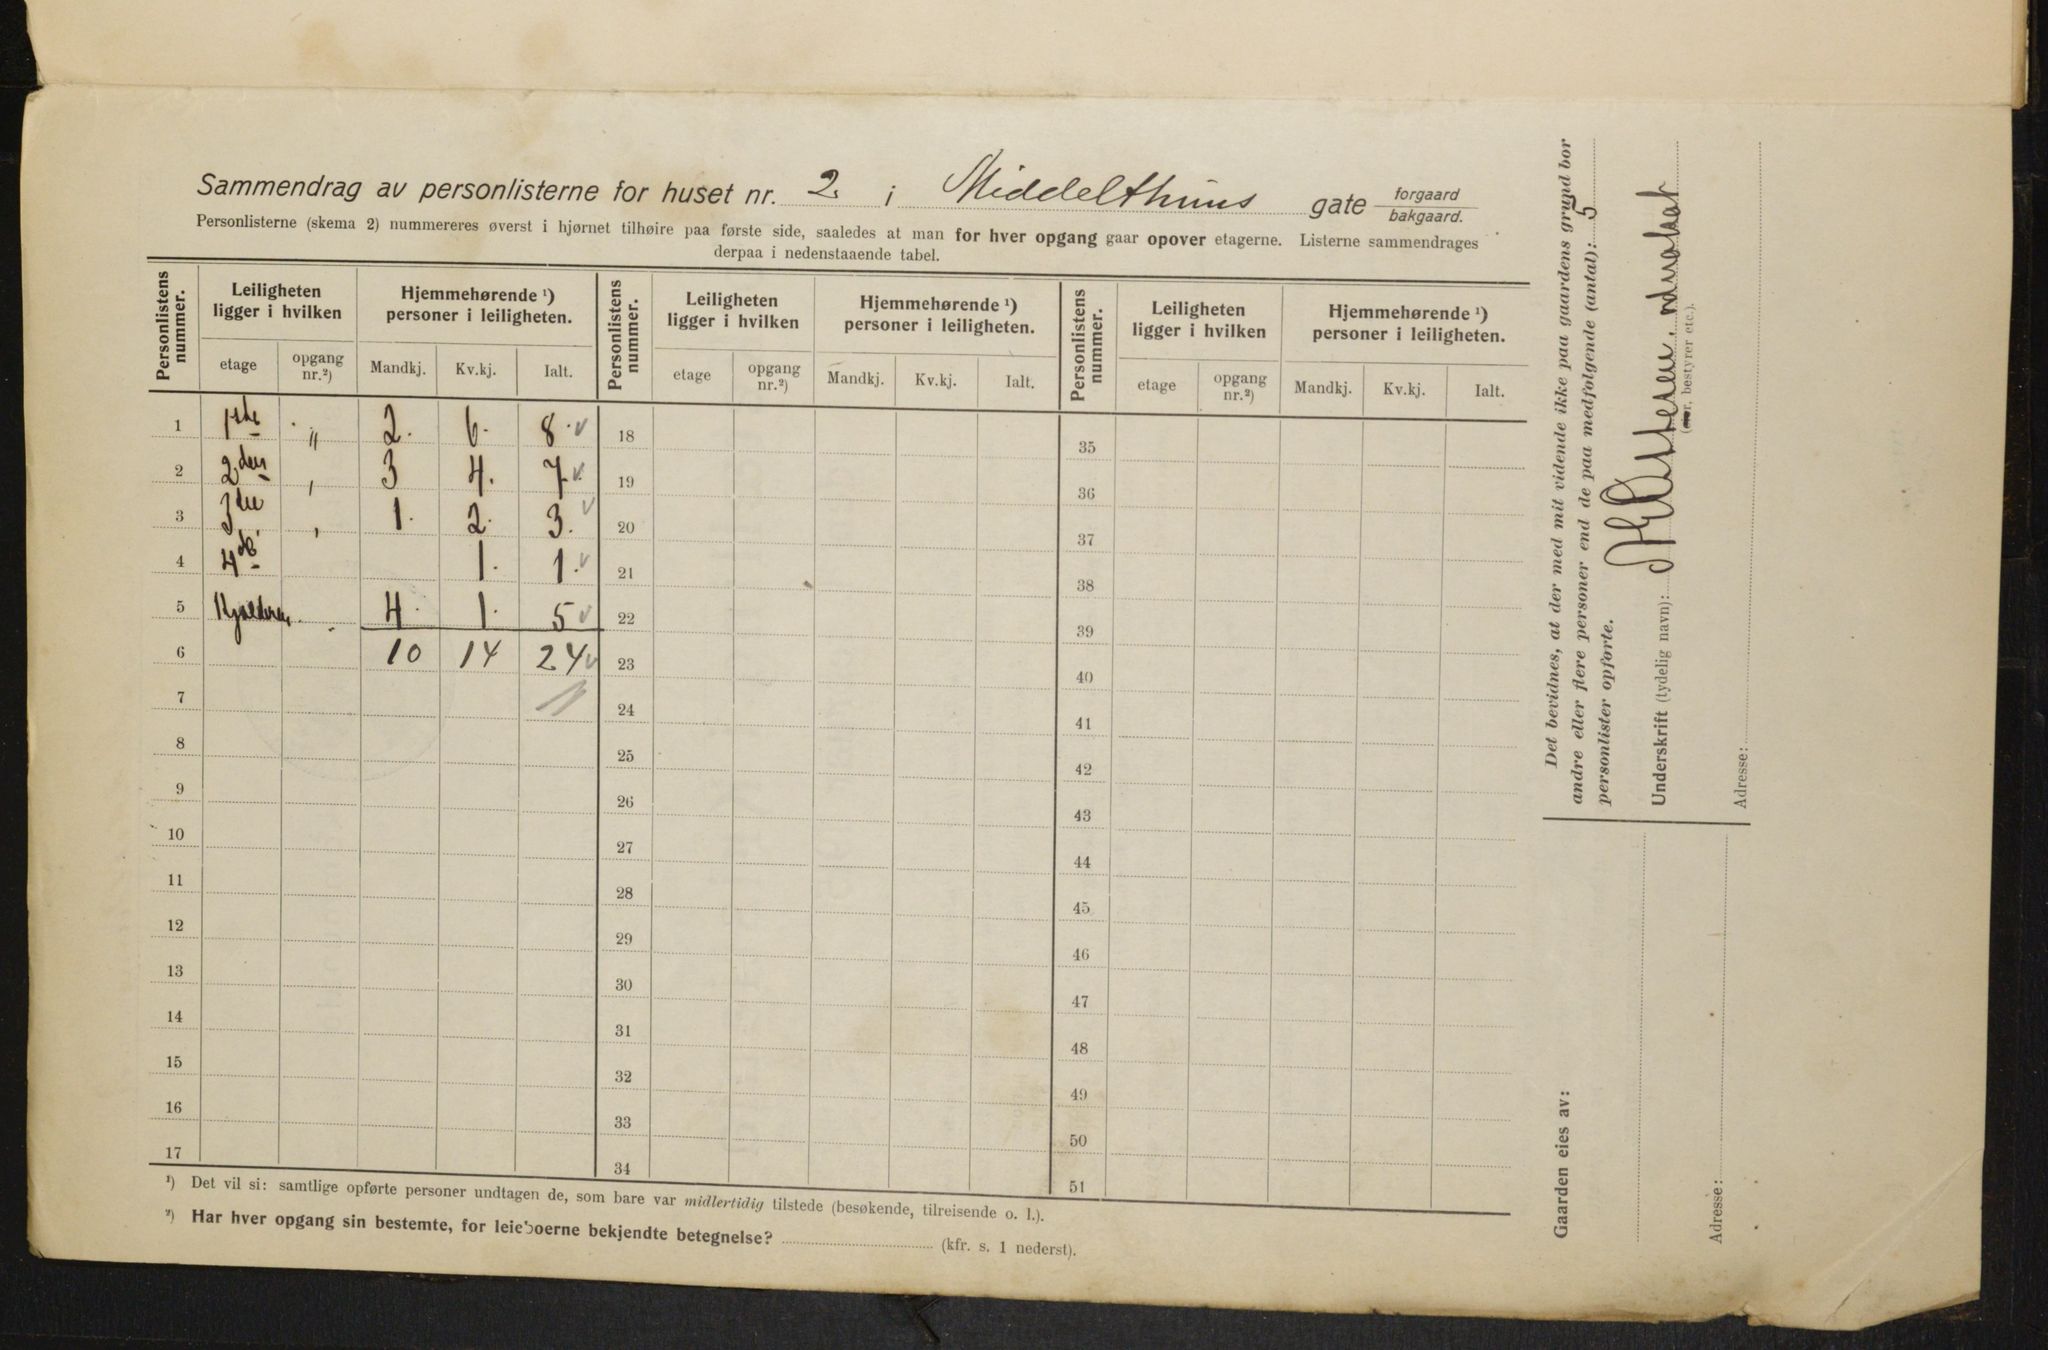 Sammendrag av personlisterne for huset nr. 2 i Middelthuns gate forgaard / bakgaard.
Personlisterne (skema 2) nummereres øverst i hjørnet tilhøire paa første side, saaledes at man for hver opgang gaar opover etagerne. Listerne sammendrages
derpaa i nedenstaaende tabel.
Personlistens nummer. | Leiligheten ligger i hvilken | Hjemmehørende ¹) personer i leiligheten. | Personlistens nummer. | Leiligheten ligger i hvilken | Hjemmehørende ¹) personer i leiligheten. | Personlistens nummer. | Leiligheten ligger i hvilken | Hjemmehørende ¹) personer i leiligheten.
etage | opgang nr.²) | Mandkj. | Kv.kj. | Ialt. | etage | opgang nr.²) | Mandkj. | Kv.kj. | Ialt. | etage | opgang nr.²) | Mandkj. | Kv.kj. | Ialt.
1 | 1ste | " | 2. | 6. | 8. | 18 | 35
2 | 2den | , | 3 | 4. | 7. | 19 | 36
3 | 3die | , | 1. | 2. | 3. | 20 | 37
4 | 4de | 1. | 1. | 21 | 38
5 | Kjælderen. | 4. | 1. | 5 | 22 | 39
6 | 10 | 14 | 24 | 23 | 40
7 | 24 | 41
8 | 25 | 42
9 | 26 | 43
10 | 27 | 44
11 | 28 | 45
12 | 29 | 46
13 | 30 | 47
14 | 31 | 48
15 | 32 | 49
16 | 33 | 50
17 | 34 | 51
¹) Det vil si: samtlige opførte personer undtagen de, som bare var midlertidig tilstede (besøkende, tilreisende o. l.).
²) Har hver opgang sin bestemte, for leieboerne bekjendte betegnelse? (kfr. s. 1 nederst).
Det bevidnes, at der med mit vidende ikke paa gaardens grund bor
andre eller flere personer end de paa medfølgende (antal): 5
personlister opførte.
Underskrift (tydelig navn):
(eier, bestyrer etc.).
Adresse:
Gaarden eies av:
Adresse: